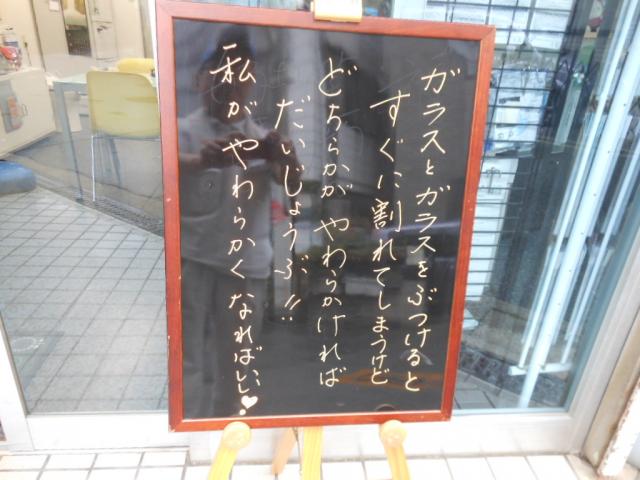 ガラスとガラスをぶつけると
すぐに割れてしまうけど
どちらかがやわらかければ
だいじょうぶ!!
私がやわらかくなればいい♥